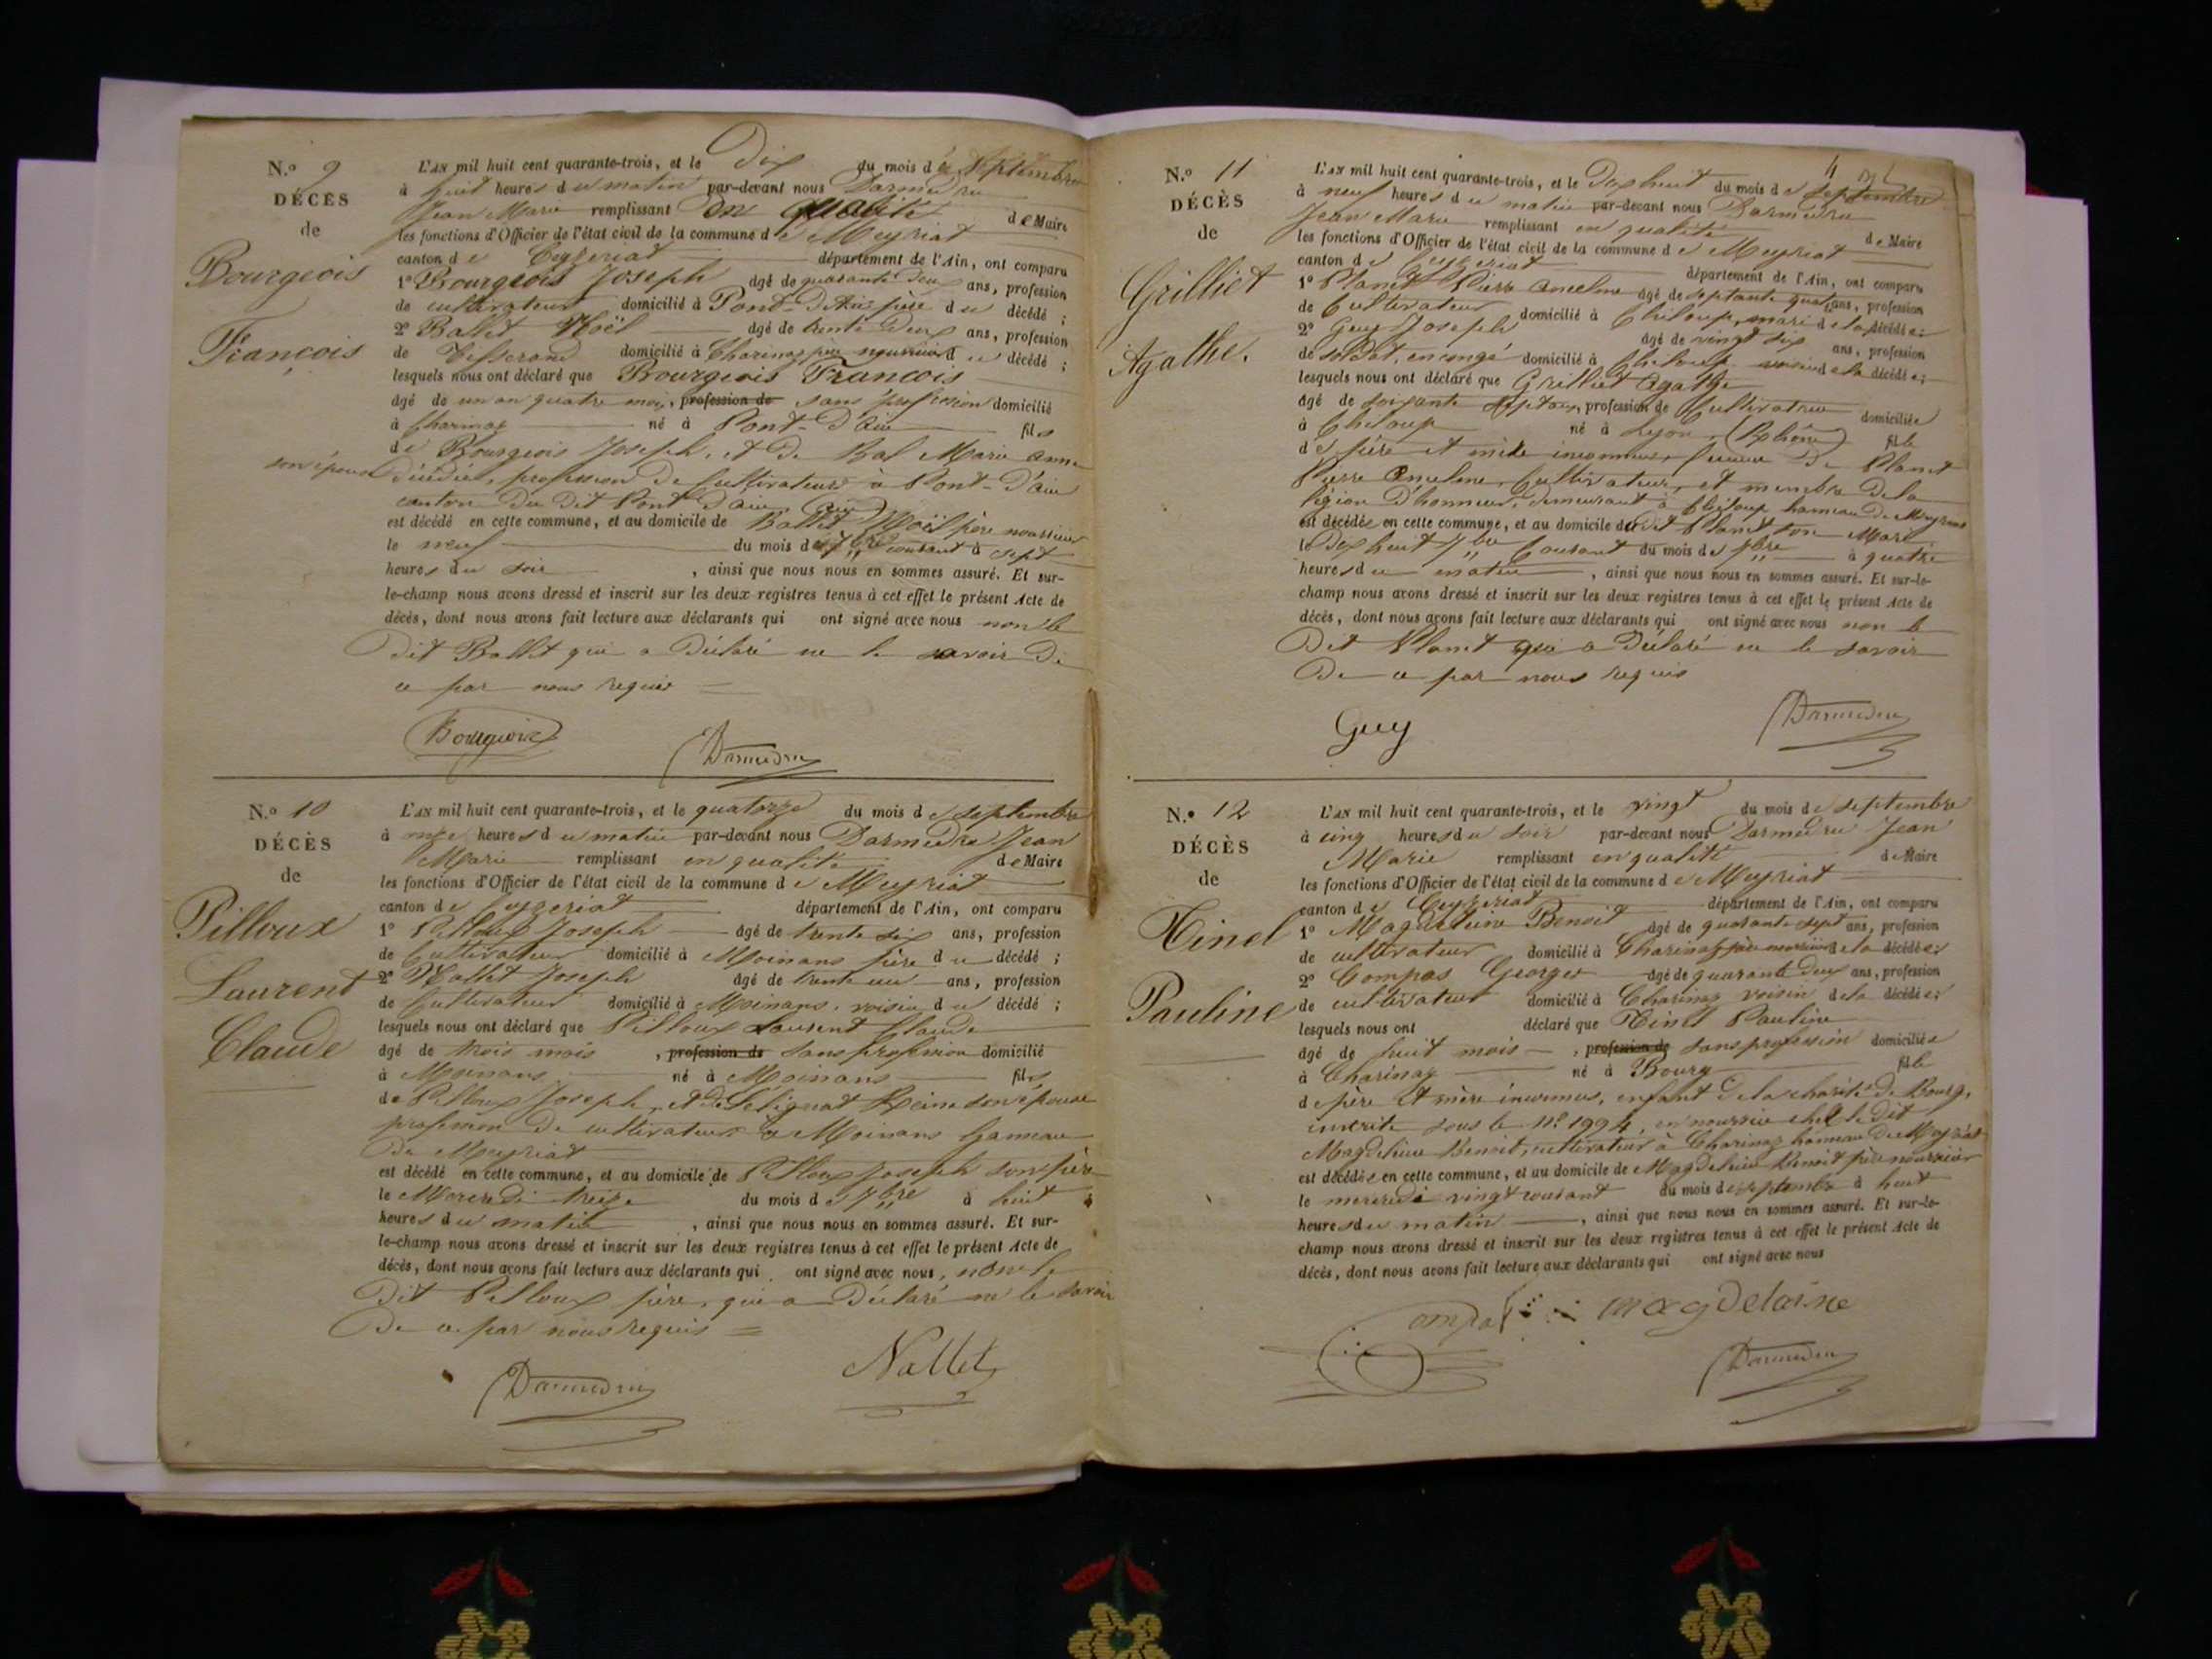 N.o 9
DÉCÈS
de
Bourgeois
François
L'AN mil huit cent quarante-trois, et le Dix du mois de Septembre
à huit heures du matin par-devant nous Darmedru
Jean Marie remplissant en qualité de Maire
les fonctions d'Officier de l'état civil de la commune de Meyriat
canton de Ceyzeriat département de l'Ain, ont comparu
1o Bourgeois Joseph âgé de quarante deux ans, profession
de cultivateur domicilié à Pont-d'Ain père du décédé ;
2o Ballet Noël âgé de trente deux ans, profession
de Tisserand domicilié à Charinaz père nourricier du décédé ;
lesquels nous ont déclaré que Bourgeois François
âgé de un an quatre mois, profession de sans profession domicilié
à Charinaz né à Pont-d'Ain fils
de Bourgeois Joseph, et de Bal Marie anne
son épouse décédée, profession de Cultivateurs à Pont-d'ain
canton du dit Pont d'ain (ain)
est décédé en cette commune, et au domicile de Ballet Noël père nourricier
le neuf du mois de 7bre courant à sept
heures du soir , ainsi que nous nous en sommes assuré. Et sur-
le-champ nous avons dressé et inscrit sur les deux registres tenus à cet effet le présent Acte de
décès, dont nous avons fait lecture aux déclarants qui ont signé avec nous non le
Dit Ballet qui a Déclaré ne le savoir De
ce par nous requis =
Bourgeois
Darmedru
N.o 10
DÉCÈS
de
Pilloux
Laurent
Claude
L'AN mil huit cent quarante-trois, et le quatorze du mois de Septembre
à onze heures du matin par-devant nous Darmedru Jean
Marie remplissant en qualité de Maire
les fonctions d'Officier de l'état civil de la commune de Meyriat
canton de Ceyzeriat département de l'Ain, ont comparu
1o Pilloux Joseph âgé de trente six ans, profession
de Cultivateur domicilié à Moinans père du décédé ;
2o Nallet Joseph âgé de trente un ans, profession
de Cultivateur domicilié à Moinans, voisin du décédé ;
lesquels nous ont déclaré que Pilloux Laurent Claude
âgé de trois mois , profession de sans profession domicilié
à Moinans né à Moinans fils
de Pilloux Joseph, et de Selignat Reine son épouse
profession de cultivateurs a Moinans hameau
De Meyriat
est décédé en cette commune, et au domicile de Pilloux Joseph son père
le Mercredi treize du mois de 7bre à huit
heures du matin , ainsi que nous nous en sommes assuré. Et sur-
le-champ nous avons dressé et inscrit sur les deux registres tenus à cet effet le présent Acte de
décès, dont nous avons fait lecture aux déclarants qui ont signé avec nous, non le
Dit Pilloux père, qui a Déclaré ne le savoir
De ce par nous requis =
Darmedru
Nallet
N.o 11
DÉCÈS
de
Grilliet
Agathe.
L'AN mil huit cent quarante-trois, et le Dix huit du mois de Septembre
à neuf heures du matin par-devant nous Darmedru
Jean Marie remplissant en qualité de Maire
les fonctions d'Officier de l'état civil de la commune de Meyriat
canton de Ceyzeriat département de l'Ain, ont comparu
1o Planet Pierre Anselme âgé de septante quatre ans, profession
de Cultivateur domicilié à Chiloup, mari de la décédée ;
2o Guy Joseph âgé de vingt six ans, profession
de soldat, en congé domicilié à Chiloup voisin de la décédée ;
lesquels nous ont déclaré que Grilliet agathe
âgé de soixante sept ans, profession de Cultivatrice domiciliée
à Chiloup né à Lyon, (Rhône) fille
de père et mère inconnus, femme De Planet
Pierre Anselme, Cultivateur, et membre De la
légion D'honneur, demeurant à Chiloup hameau De Meyriat
est décédée en cette commune, et au domicile du dit Planet son Mari
le Dix huit 7bre Courant du mois de 7bre à quatre
heures du matin , ainsi que nous nous en sommes assuré. Et sur-le-
champ nous avons dressé et inscrit sur les deux registres tenus à cet effet le présent Acte de
décès, dont nous avons fait lecture aux déclarants qui ont signé avec nous non le
Dit Planet qui a Déclaré ne le savoir
De ce par nous requis
Guy
Darmedru
N.o 12
DÉCÈS
de
Tinel
Pauline
L'AN mil huit cent quarante-trois, et le vingt du mois de Septembre
à cinq heures du soir par-devant nous Darmedru Jean
Marie remplissant en qualité de Maire
les fonctions d'Officier de l'état civil de la commune de Meyriat
canton de Ceyzeriat département de l'Ain, ont comparu
1o Magdeleine Benoit âgé de quarante sept ans, profession
de cultivateur domicilié à Charinaz père nourricier de la décédée ;
2o Compas George âgé de quarante deux ans, profession
de cultivateur domicilié à Charinaz voisin de la décédée ;
lesquels nous ont déclaré que Tinel Pauline
âgé de huit mois , profession de sans profession domiciliée
à Charinaz né à Bourg fille
de père et mère inconnus, enfant de la charité de Bourg,
inscrite sous le No 1994, en nourrice chez le dit
Magdeleine Benoit, cultivateur à Charinaz hameau de Meyriat
est décédée en cette commune, et au domicile de Magdeleine Benoit père nourricier
le mercredi vingt courant du mois de septembre à huit
heures du matin , ainsi que nous nous en sommes assuré. Et sur-le-
champ nous avons dressé et inscrit sur les deux registres tenus à cet effet le présent Acte de
décès, dont nous avons fait lecture aux déclarants qui ont signé avec nous
Compas magdelaine
Darmedru